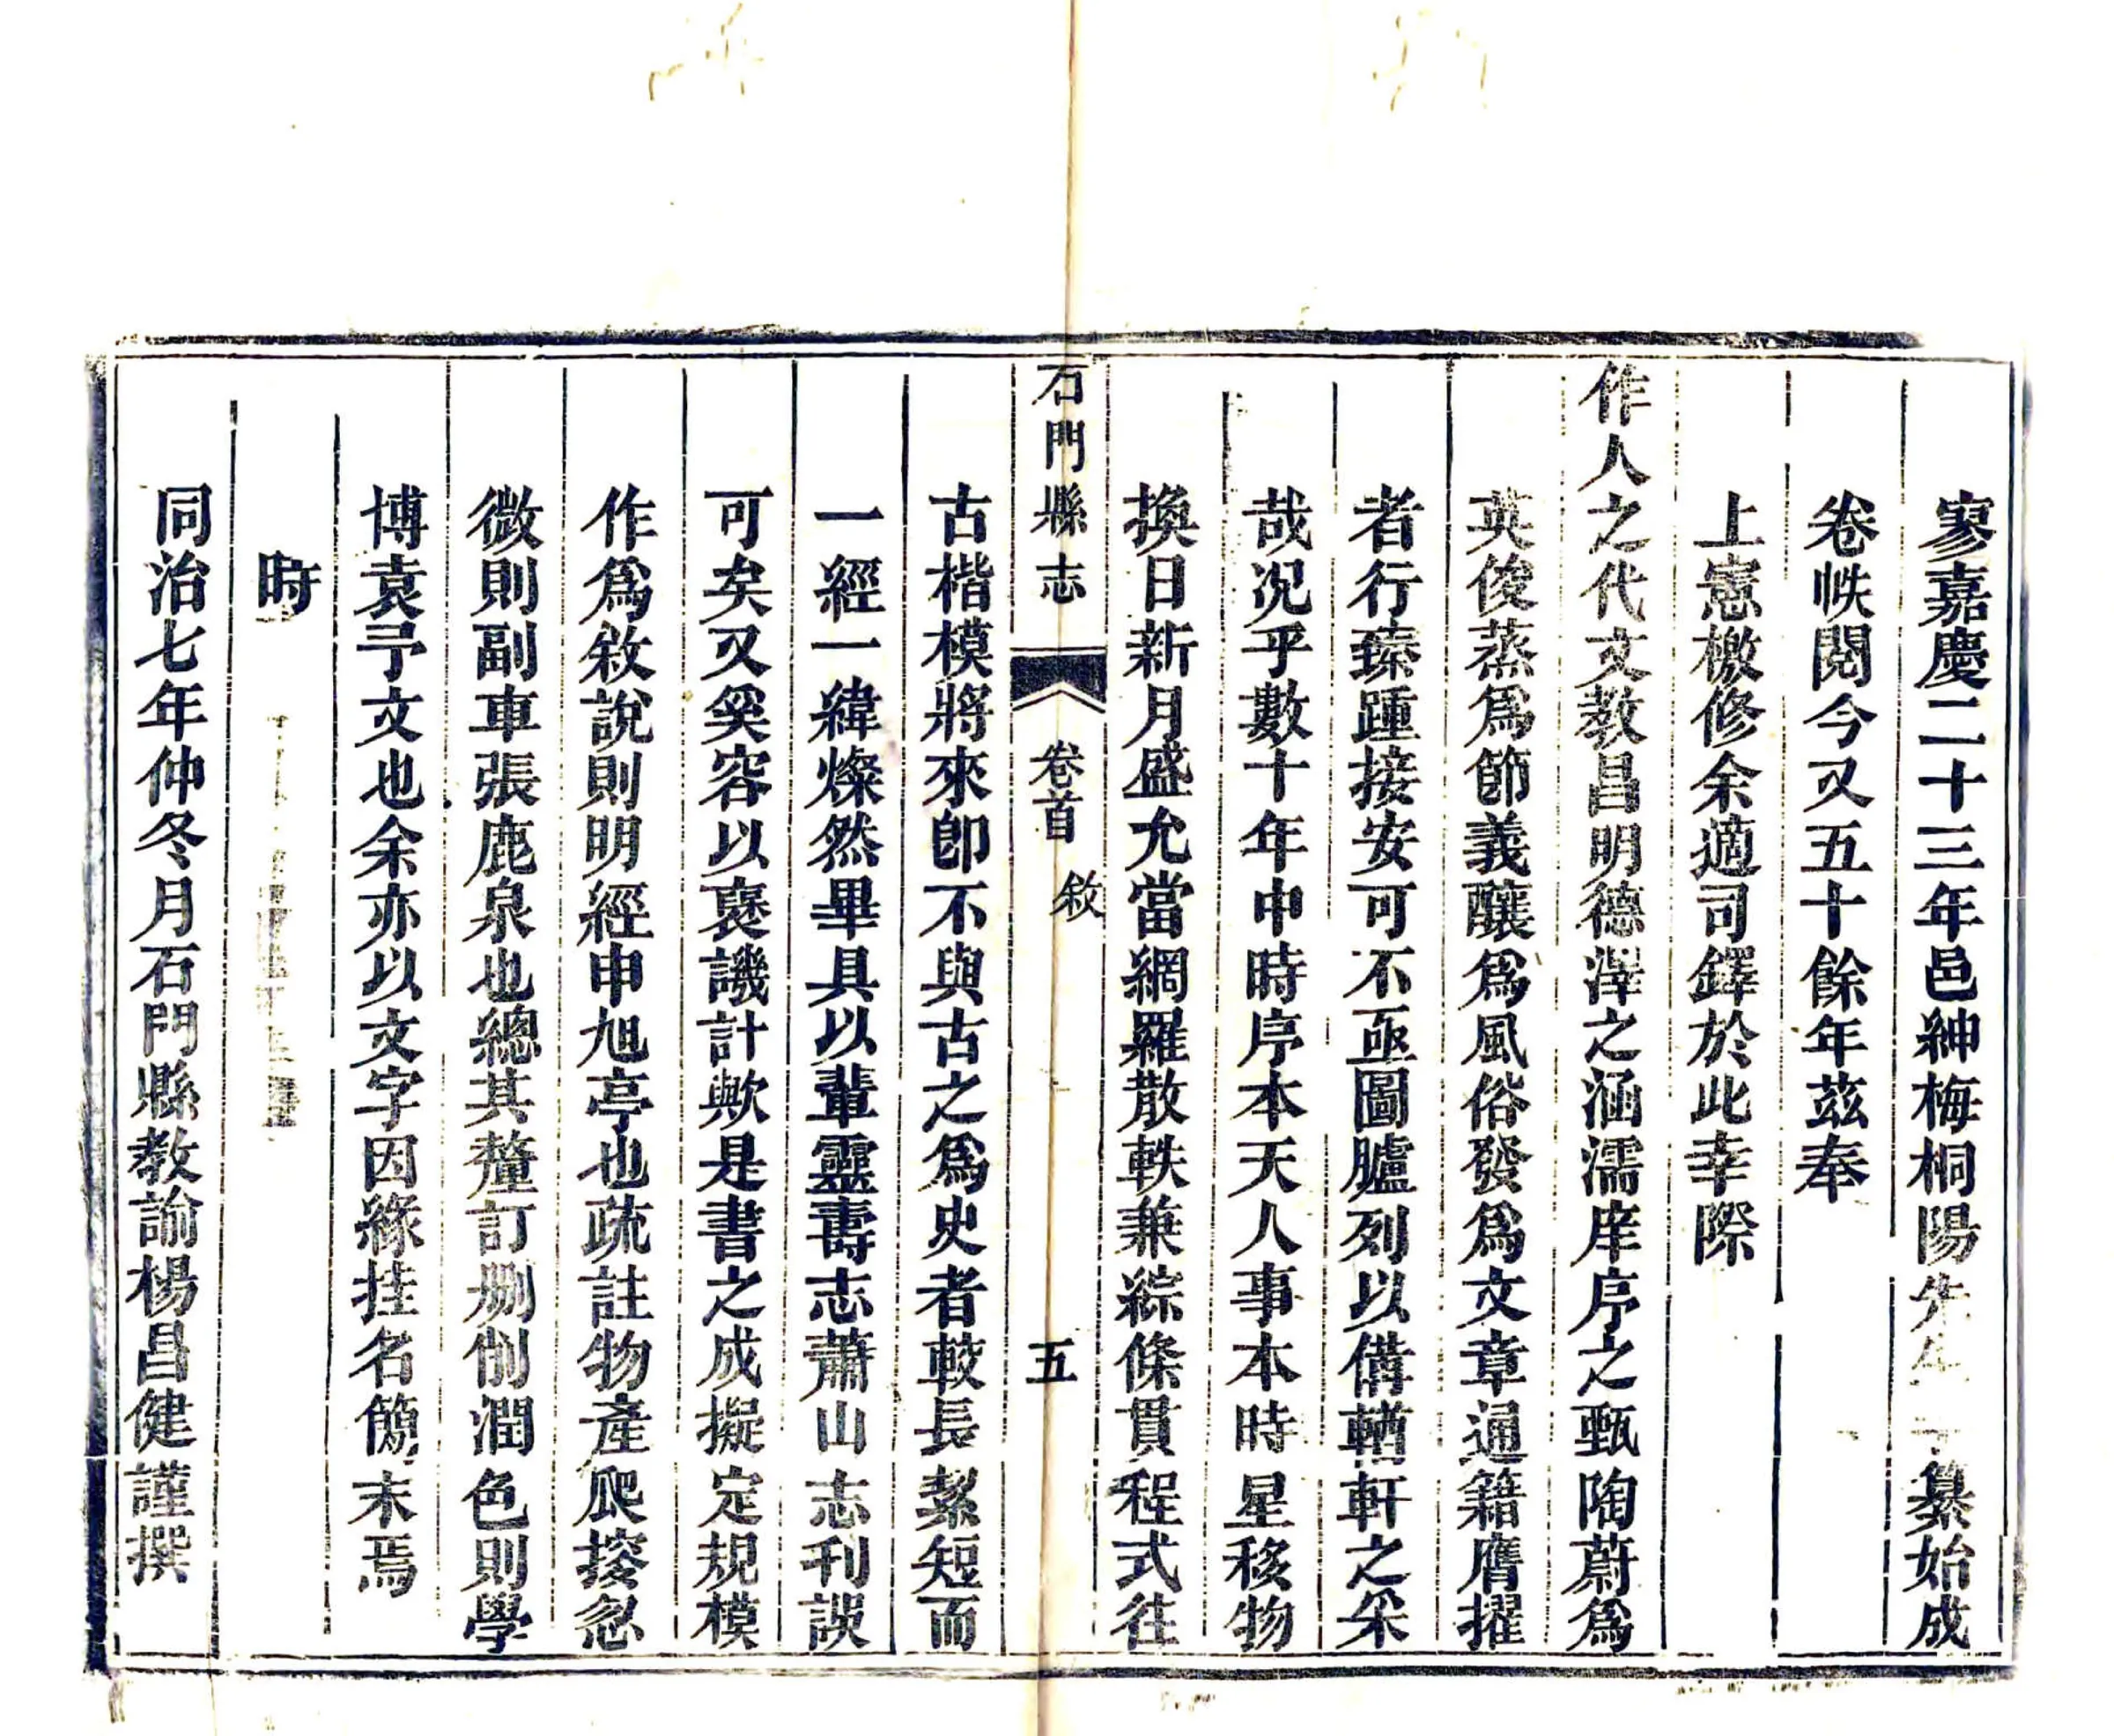 寥嘉慶二十三年邑紳梅桐陽先生纂始成
卷帙閱今又五十餘年茲奉
上憲檄修余適司鐸於此幸際
作人之代文教昌明德澤之涵濡庠序之甄陶蔚爲
英俊蒸爲節義釀爲風俗發爲文章通籍膺擢
者行臻踵接安可不亟圖臚列以備輶軒之采
哉况乎數十年中時序本天人事本時星移物
換日新月盛允當網羅散軼兼綜條貫程式往
石門縣志
卷首
敘
五
古楷模將來卽不與古之爲史者較長絜短而
一經一緯燦然畢具以輩靈壽志蕭山志刊誤
可矣又奚容以襃譏計歟是書之成擬定規模
作爲敘說則明經申旭亭也疏註物產爬搜忽
微則副車張鹿泉也總其釐訂刪削潤色則學
博袁予文也余亦以文字因緣挂名簡末焉
時
同治七年仲冬月石門縣教諭楊昌健謹撰